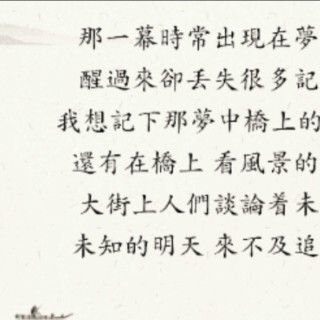 那一幕時常出現在夢
醒過來卻丟失很多記
我想記下那夢中橋上的
還有在橋上 看風景的
大街上人們談論着未
未知的明天 來不及追